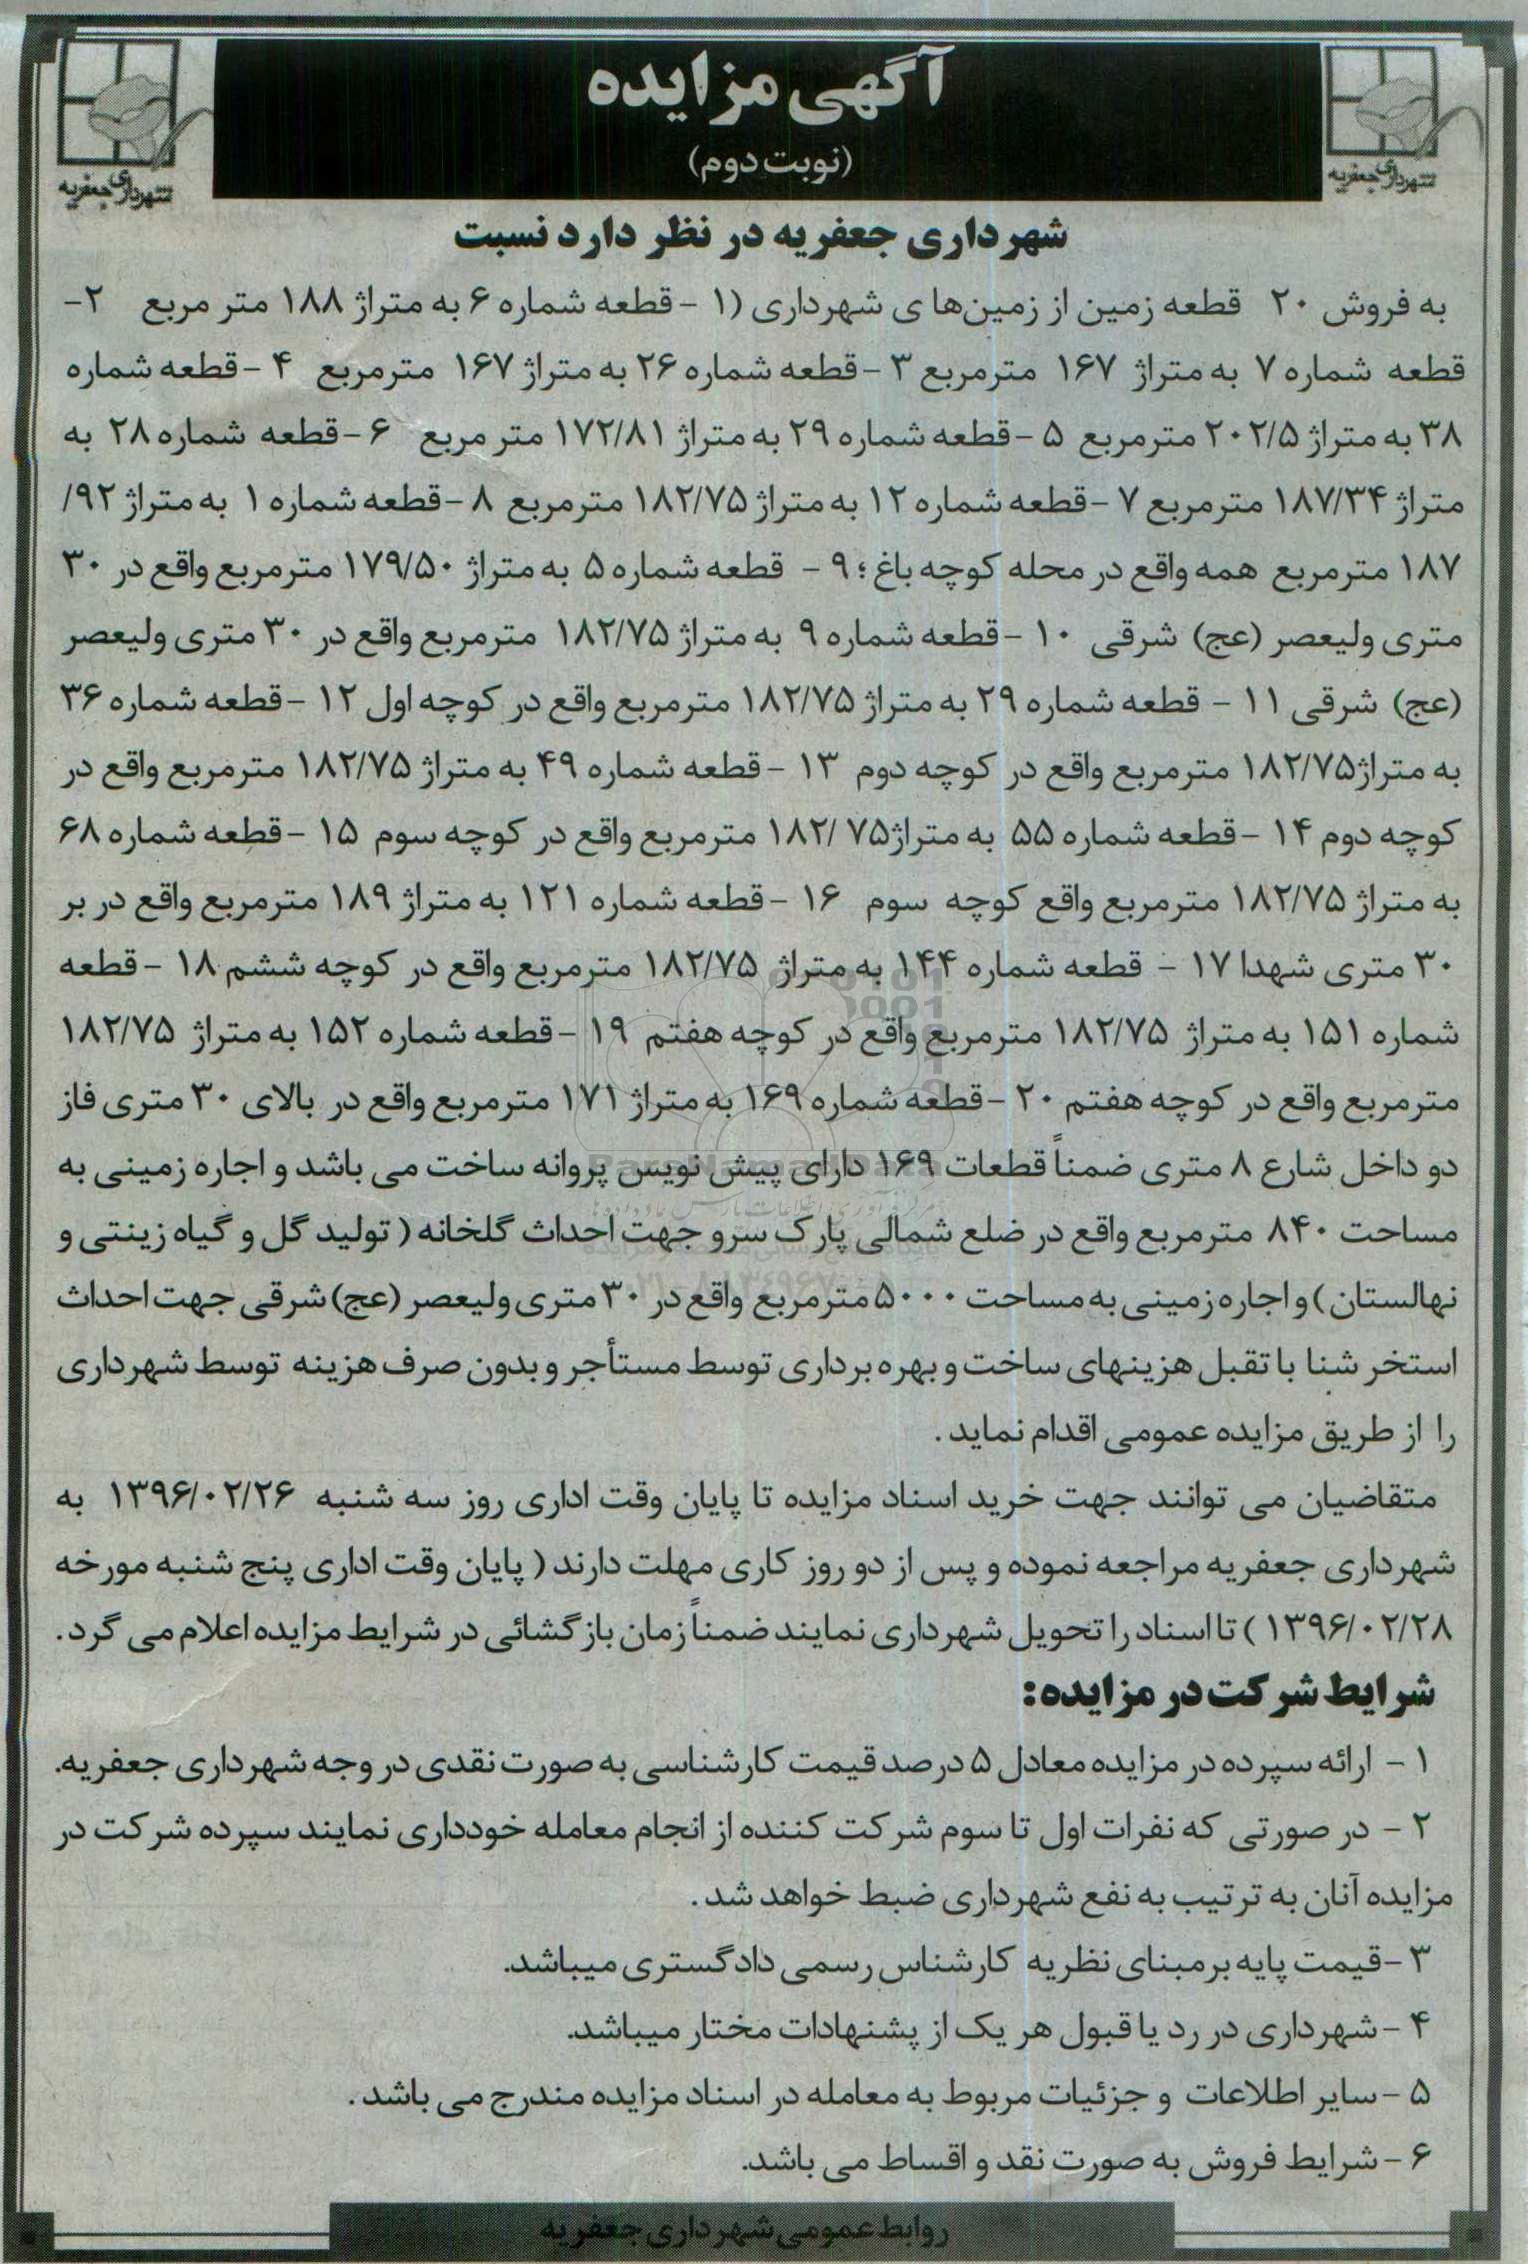 آگهی مزایده
(نوبت دوم)
شهرداری جعفریه
شهرداری جعفریه
شهرداری جعفریه در نظر دارد نسبت
به فروش ۲۰ قطعه زمین از زمین‌ها ی شهرداری (۱ - قطعه شماره ۶ به متراژ ۱۸۸ متر مربع ۲-
قطعه شماره ۷ به متراژ ۱۶۷ مترمربع ۳ - قطعه شماره ۲۶ به متراژ ۱۶۷ مترمربع ۴ - قطعه شماره
۳۸ به متراژ ۲۰۲/۵ مترمربع ۵ - قطعه شماره ۲۹ به متراژ ۱۷۲/۸۱ متر مربع ۶ - قطعه شماره ۲۸ به
متراژ ۱۸۷/۳۴ مترمربع ۷ - قطعه شماره ۱۲ به متراژ ۱۸۲/۷۵ مترمربع ۸ - قطعه شماره ۱ به متراژ ۹۲/
۱۸۷ مترمربع همه واقع در محله کوچه باغ ؛ ۹ - قطعه شماره ۵ به متراژ ۱۷۹/۵۰ مترمربع واقع در ۳۰
متری ولیعصر (عج) شرقی ۱۰ - قطعه شماره ۹ به متراژ ۱۸۲/۷۵ مترمربع واقع در ۳۰ متری ولیعصر
(عج) شرقی ۱۱ - قطعه شماره ۲۹ به متراژ ۱۸۲/۷۵ مترمربع واقع در کوچه اول ۱۲ - قطعه شماره ۳۶
به متراژ۱۸۲/۷۵ مترمربع واقع در کوچه دوم ۱۳ - قطعه شماره ۴۹ به متراژ ۱۸۲/۷۵ مترمربع واقع در
کوچه دوم ۱۴ - قطعه شماره ۵۵ به متراژ۷۵ /۱۸۲ مترمربع واقع در کوچه سوم ۱۵ - قطعه شماره ۶۸
به متراژ ۱۸۲/۷۵ مترمربع واقع کوچه سوم ۱۶ - قطعه شماره ۱۲۱ به متراژ ۱۸۹ مترمربع واقع در بر
۳۰ متری شهدا ۱۷ - قطعه شماره ۱۴۴ به متراژ ۱۸۲/۷۵ مترمربع واقع در کوچه ششم ۱۸ - قطعه
شماره ۱۵۱ به متراژ ۱۸۲/۷۵ مترمربع واقع در کوچه هفتم ۱۹ - قطعه شماره ۱۵۲ به متراژ ۱۸۲/۷۵
مترمربع واقع در کوچه هفتم ۲۰ - قطعه شماره ۱۶۹ به متراژ ۱۷۱ مترمربع واقع در بالای ۳۰ متری فاز
دو داخل شارع ۸ متری ضمناً قطعات ۱۶۹ دارای پیش نویس پروانه ساخت می باشد و اجاره زمینی به
مساحت ۸۴۰ مترمربع واقع در ضلع شمالی پارک سرو جهت احداث گلخانه ( تولید گل و گیاه زینتی و
نهالستان) و اجاره زمینی به مساحت ۵۰۰۰ مترمربع واقع در ۳۰ متری ولیعصر (عج) شرقی جهت احداث
استخر شنا با تقبل هزینهای ساخت و بهره برداری توسط مستأجر و بدون صرف هزینه توسط شهرداری
را از طریق مزایده عمومی اقدام نماید .
متقاضیان می توانند جهت خرید اسناد مزایده تا پایان وقت اداری روز سه شنبه ۱۳۹۶/۰۲/۲۶ به
شهرداری جعفریه مراجعه نموده و پس از دو روز کاری مهلت دارند ( پایان وقت اداری پنج شنبه مورخه
۱۳۹۶/۰۲/۲۸ ) تا اسناد را تحویل شهرداری نمایند ضمناً زمان بازگشائی در شرایط مزایده اعلام می گرد .
شرایط شرکت در مزایده:
۱ - ارائه سپرده در مزایده معادل ۵ درصد قیمت کارشناسی به صورت نقدی در وجه شهرداری جعفریه.
۲ - در صورتی که نفرات اول تا سوم شرکت کننده از انجام معامله خودداری نمایند سپرده شرکت در
مزایده آنان به ترتیب به نفع شهرداری ضبط خواهد شد .
۳ - قیمت پایه برمبنای نظریه کارشناس رسمی دادگستری میباشد.
۴ - شهرداری در رد یا قبول هر یک از پشنهادات مختار میباشد.
۵ - سایر اطلاعات و جزئیات مربوط به معامله در اسناد مزایده مندرج می باشد .
۶ - شرایط فروش به صورت نقد و اقساط می باشد.
روابط عمومی شهرداری جعفریه